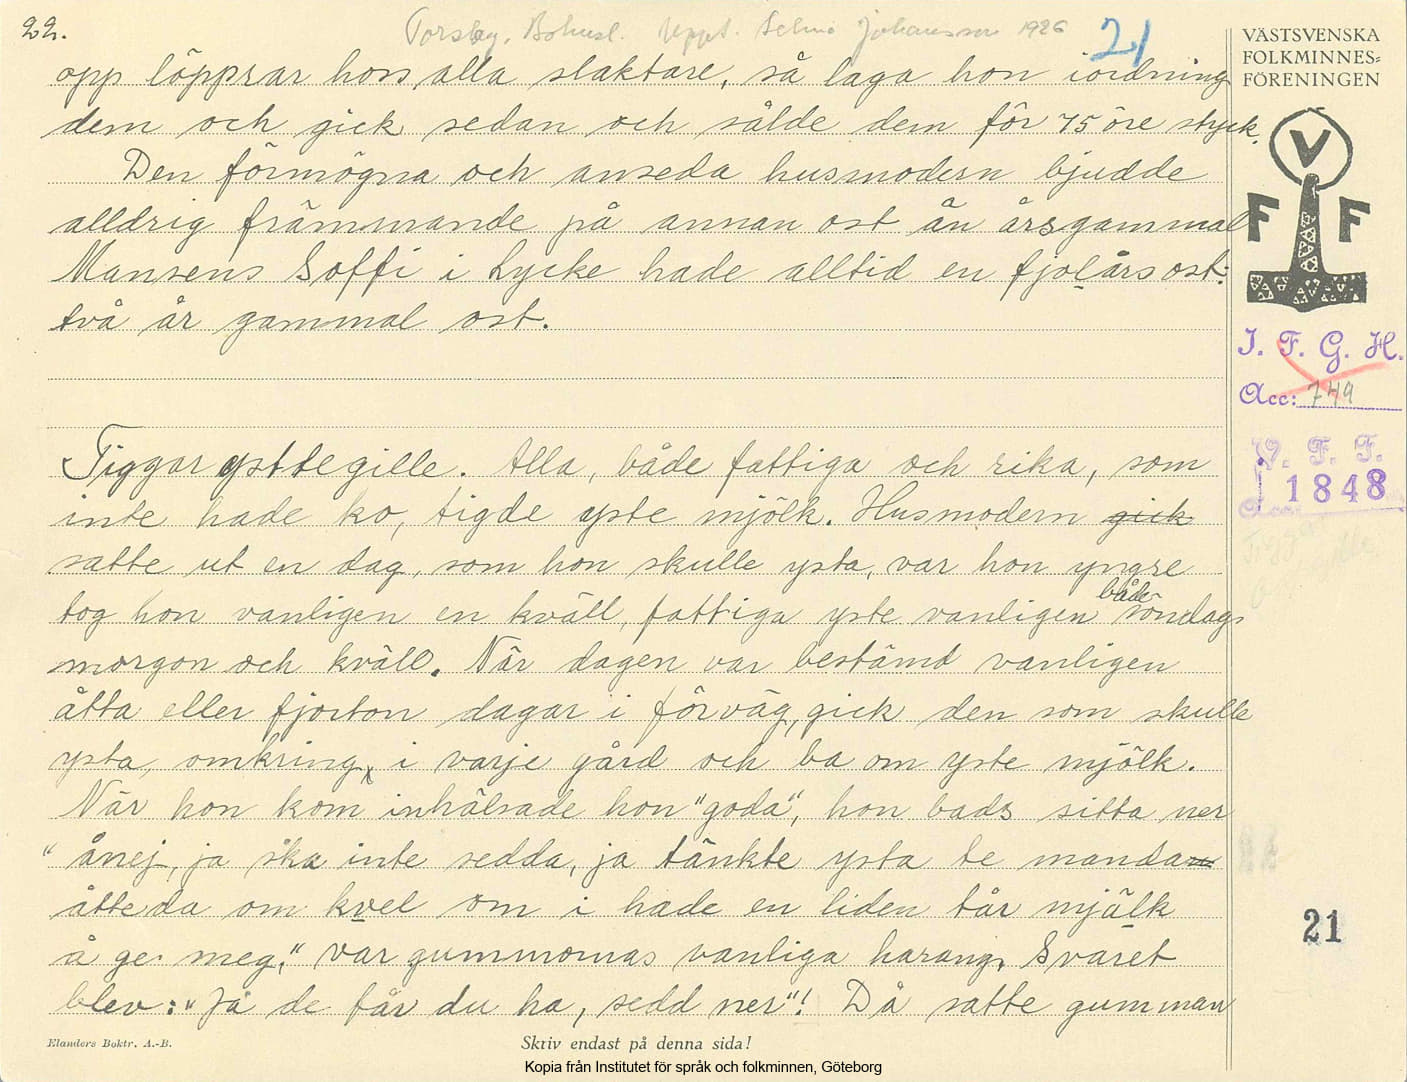 22.
Torsby, Bohusl. Uppt. Selma Johansson 1926
21
VÄSTSVENSKA
FOLKMINNES=
FÖRENINGEN
opp löpprar hoss alla slaktare, så laga hon iordning
dem och gick sedan och sålde dem för 75 öre styck.
Den förmögna och anseda husmodern bjudde
alldrig främmande på annan ost än årsgammal
Mansens Soffi i Lycke hade alltid en fjolårsost:
två år gammal ost.
V
F F
I. F. G. H.
Acc: 749
V. F. F.
Acc: 1848
Tiggar ysttegille. Alla, både fattiga och rika, som
inte hade ko, tigde yste mjölk. Husmodern gick
satte ut en dag, som hon skulle ysta, var hon yngre
tog hon vanligen en kväll, fattiga yste vanligen både söndags
morgon och kväll. När dagen var bestämd vanligen
åtta eller fjorton dagar i förväg, gick den som skulle
ysta, omkring, i varje gård och ba om yste mjölk.
När hon kom in hälsade hon "goda", hon bads sitta ner
"ånej, ja ska inte sedda, ja tänkte ysta te mandan
åtteda om kvel om i hade en liden tår mjälk
å ge meg," var gummornas vanliga harang. Svaret
blev: "Ja de får du ha, sedd ner"! Då satte gumman
21
Elanders Boktr. A.-B.
Skriv endast på denna sida!
Kopia från Institutet för språk och folkminnen, Göteborg